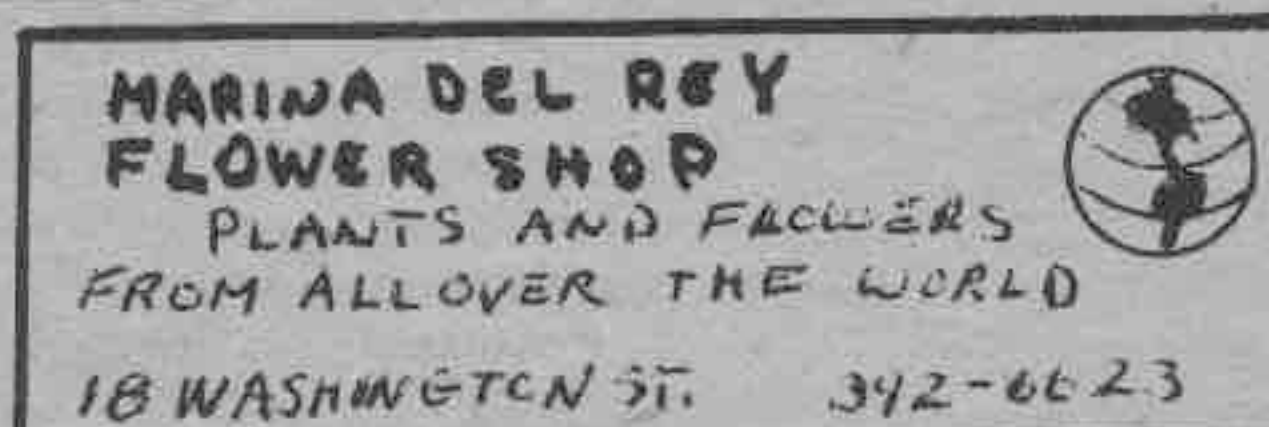 MARINA DEL REY
FLOWER SHOP
PLANTS AND FLOWERS
FROM ALLOVER THE WORLD
18 WASHINGTON ST. 392-6623